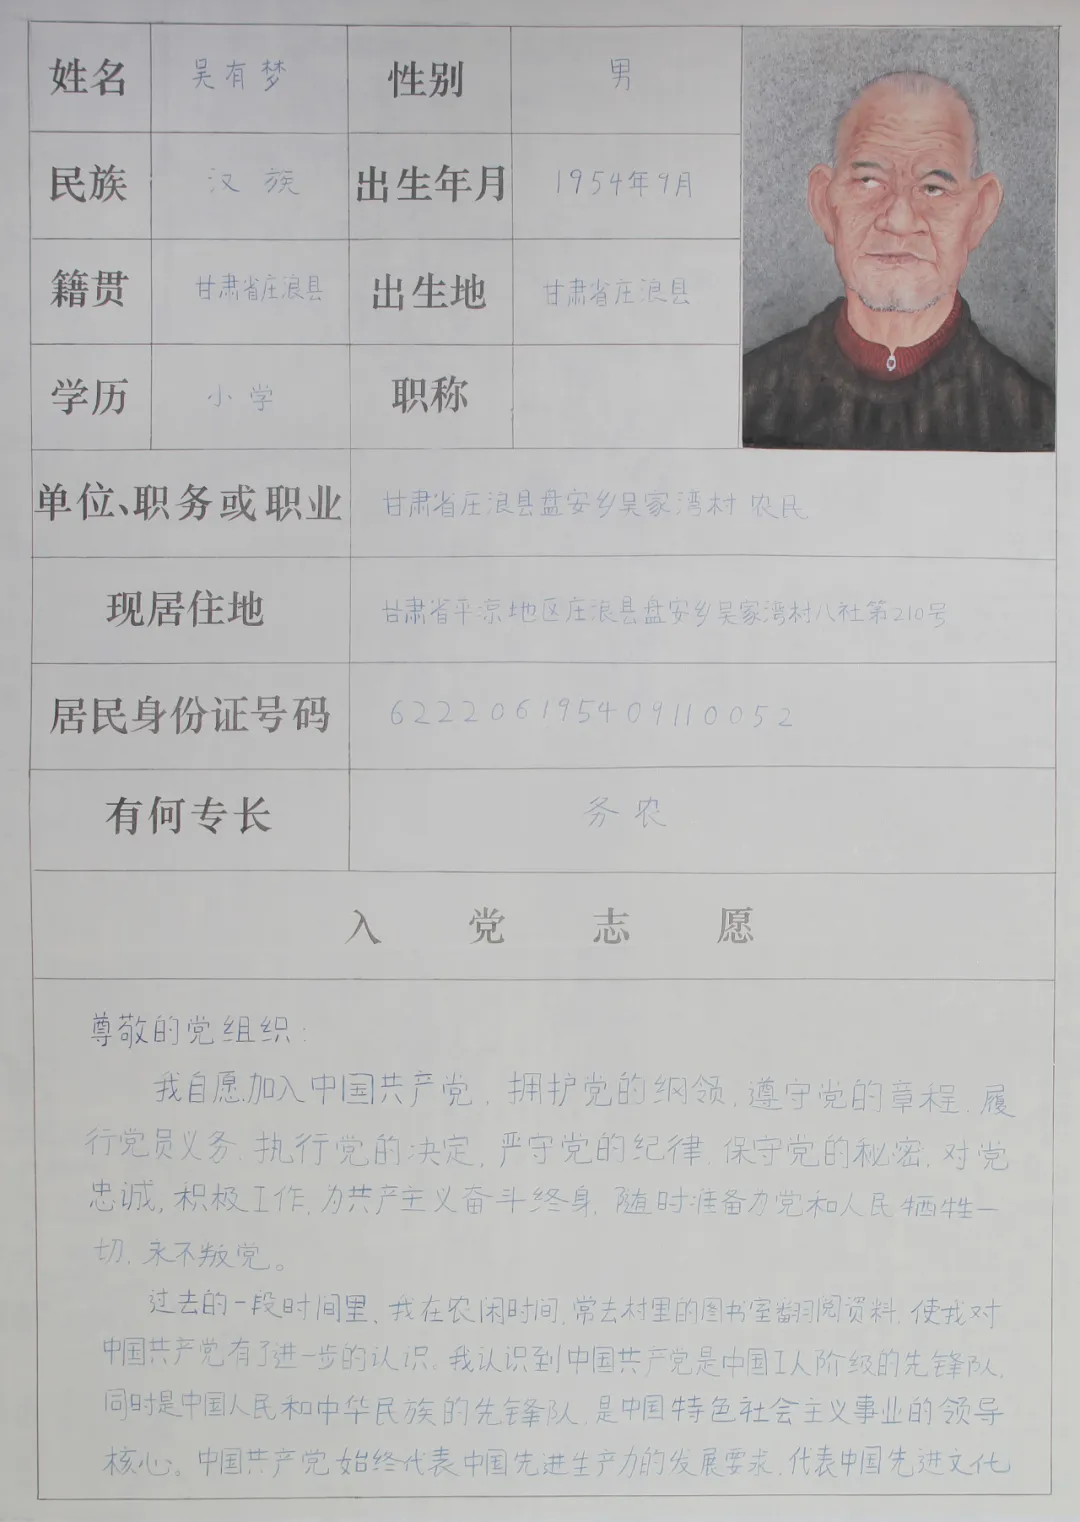 姓名 吴有梦 性别 男
民族 汉族 出生年月 1954年9月
籍贯 甘肃省庄浪县 出生地 甘肃省庄浪县
学历 小学 职称
单位、职务或职业 甘肃省庄浪县盘安乡吴家湾村 农民
现居住地 甘肃省平凉地区庄浪县盘安乡吴家湾村八社第210号
居民身份证号码 622206195409110052
有何专长 务农
入党志愿
尊敬的党组织:
我自愿加入中国共产党,拥护党的纲领,遵守党的章程,履
行党员义务,执行党的决定,严守党的纪律,保守党的秘密,对党
忠诚,积极工作,为共产主义奋斗终身,随时准备为党和人民牺牲一
切,永不叛党。
过去的一段时间里,我在农闲时间,常去村里的图书室翻阅资料,使我对
中国共产党有了进一步的认识。我认识到中国共产党是中国工人阶级的先锋队,
同时是中国人民和中华民族的先锋队,是中国特色社会主义事业的领导
核心。中国共产党始终代表中国先进生产力的发展要求,代表中国先进文化